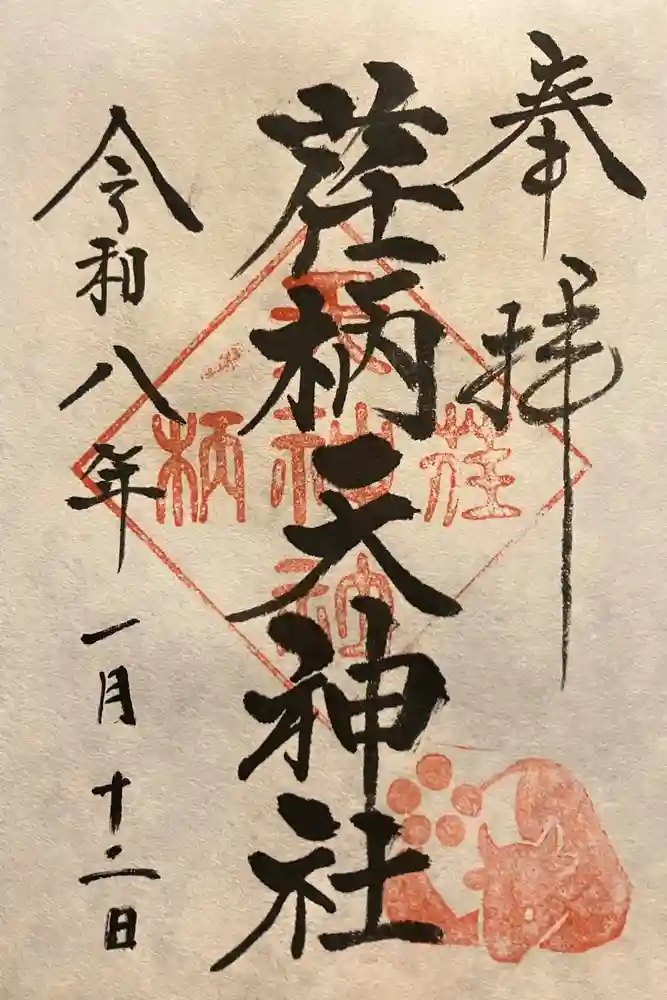 奉拝
荏柄天神社
令和八年一月十二日
荏
天神社
柄